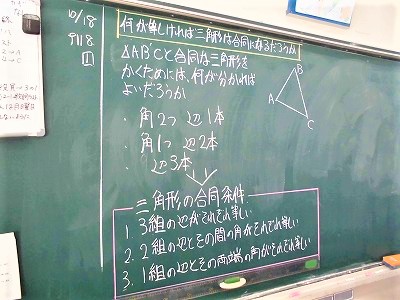 10/18
9118
1
何が等しければ三角形は合同になるだろうか
△ABCと合同な三角形を
かくためには、何が分かれば
よいだろうか
・角2つ 辺1本
・角1つ 辺2本
・辺3本
A
B
C
三角形の合同条件
1. 3組の辺がそれぞれ等しい
2. 2組の辺とその間の角がそれぞれ等しい
3. 1組の辺とその両端の角がそれぞれ等しい